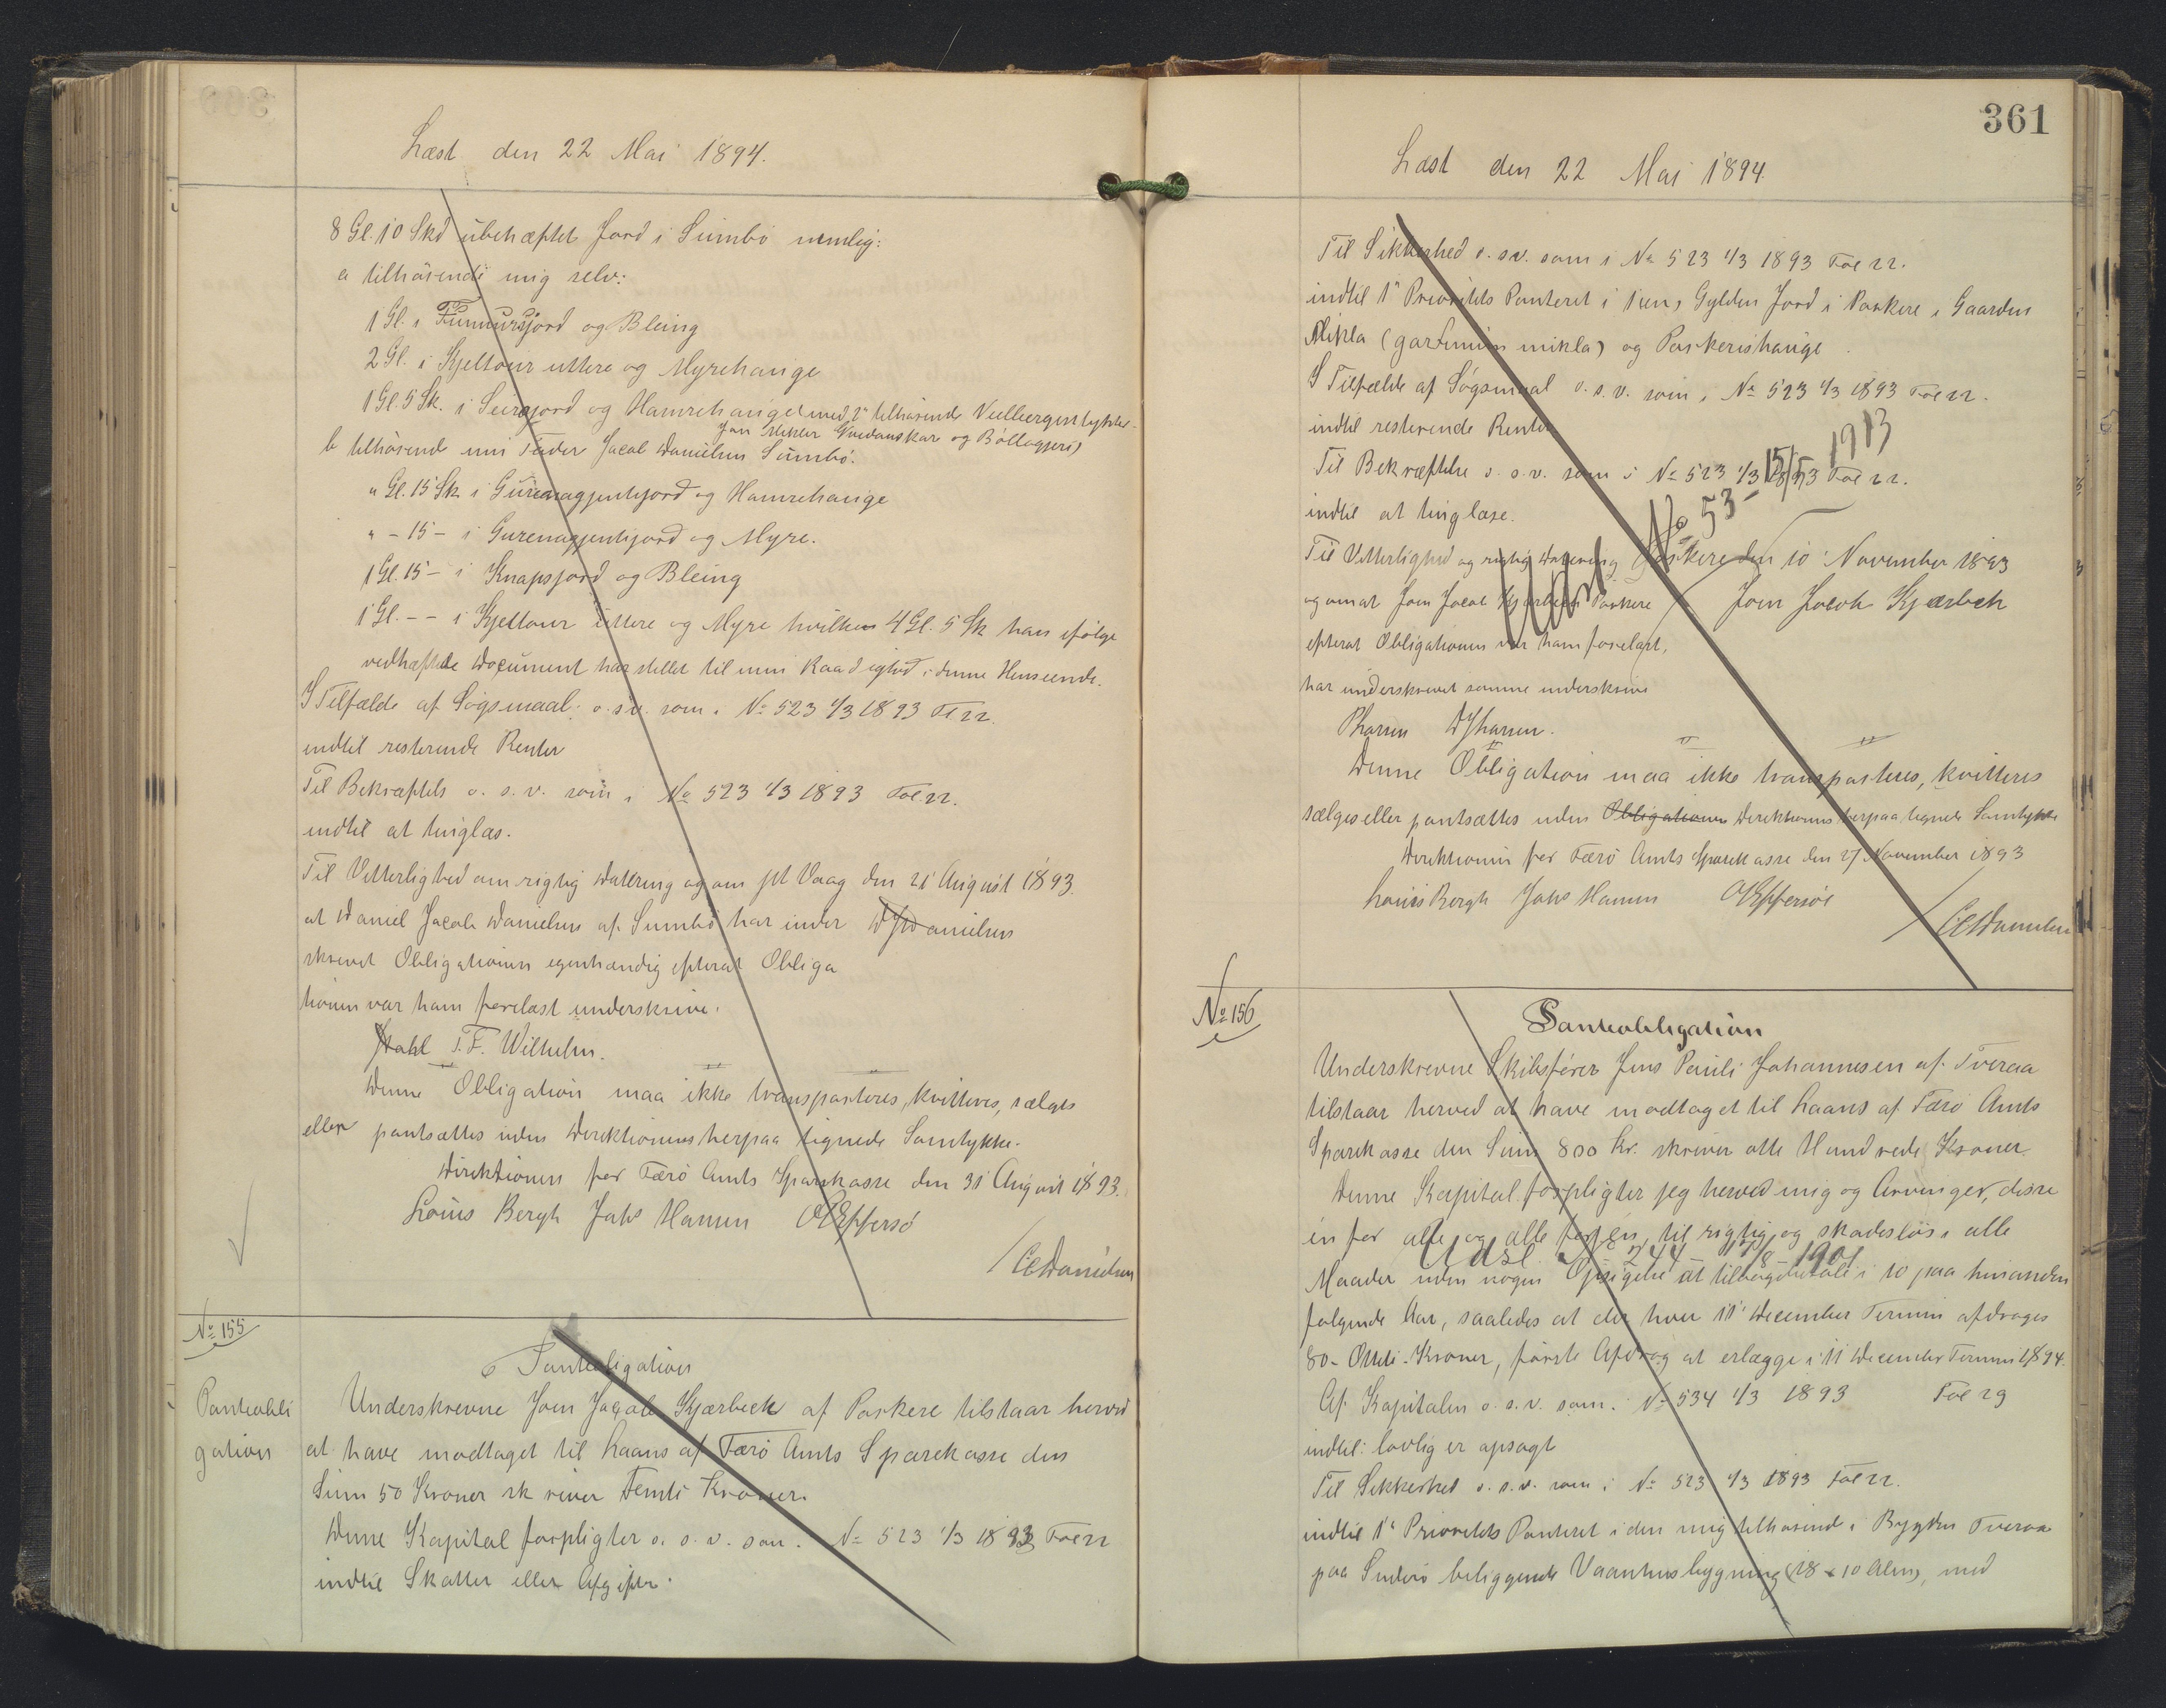 Læst den 22 Mai 1894.
8 Gl. 10 Skd ubehæftet Jord i Sumbø nemlig:
a tilhørende mig selv:
1 Gl. i Funnursjord og Bleing
2 Gl. i Kjeltour uttere og Myrehange
1 Gl. 5 Sk. i Seirajord og Hamrehange med
b tilhørend min Fader Jacob Danielsen Sumbø.
" Gl. 15 Sk i Gurenagjentjord og Hamrehange
" - 15 - i Gurenagjentjord og Myre.
1 Gl. 15 - i Knapsjord og Bleing
1 Gl. - - i Kjeltour uttere og Myre hvilken 4 Gl. 5 Sk han ifølge
vedhæftede Document har stillet til min Raadighed i denne Henseende.
I Tilfælde af Søgsmaal o. s. v. som i No 523 1/3 1893 Fol 22.
indtil resterende Renter
Til Bekræftels o. s. v. som i No 523 1/3 1893 Fol 22.
indtil at tinglæs.
Til Vitterlighed om rigtig Datering og om pt Vaag den 21 August 1893.
at Daniel Jacob Danielsen af Sumbø har under DJDanielsen
skrevet Obligationen egenhændig efterat Obliga
tionen var ham forelæst underskrive.
Stahl T. F. Wilhelm.
Denne Obligation maa ikke transporteres, kvitteres, sælges
eller pantsættes uden Direktionens herpaa tegnede Samtykke.
Direktionen for Færø Amts Sparekasse den 31 August 1893.
Louis Bergh Jahs Hansen OEffersø
/CCDanielsen
No 155
Pantobligation
Pantobli
gation
Underskrevne Joen Jacob Kjærbeck af Porkere tilstaar herved
at have modtaget til Laans af Færø Amts Sparekasse den
Sum 50 Kroner skriver Femti Kroner.
Denne Kapital forpligter o. s. v. som i No 523 1/3 1893 Fol 22
indtil Skatter eller Afgifter.
361
Læst den 22 Mai 1894
Til Sikkerhed o. s. v. som i No 523 1/3 1893 Fol 22.
indtil 1" Prioritets Panteret i 1 (en) Gylden Jord i Porkere i Gaarden
Mikla (gartunum mikla) og Porkerishauge.
I Tilfælde af Søgsmaal o. s. v. som i No 523 1/3 1893 Fol 22.
indtil resterende Renter
Til Bekræftelse o. s. v. som i No 523 1/3 1893 Fol 22.
indtil at tinglæse.
No 53 - 15/5 1913
Til Vitterlighed og rigtig Datering Porkere den 10 November 1893
og om at Joen Jacob Kjærbeck Porkere / Joen Jacob Kjærbech
efterat Obligationen var ham forelæst,
har underskrevet samme underskrive
PLarsen DJLarsen.
Denne Obligation maa ikke transporteres, kvitteres
sælges eller pantsættes uden Obligationens Direktionens herpaa tegnede Samtykke
Direktionen for Færø Amts Sparekasse den 27 November 1893
Louis Bergh Jahs Hansen OEffersøe
/CCDanielsen
No 156
Pantobligation
Underskrevne Skibsfører Jens Pauli Johannesen af Tveraa
tilstaar herved at have modtaget til Laans af Færø Amts
Sparekasse den Sum 800 Kr. skriver otte Hundrede Kroner.
Denne Kapital forpligter jeg herved mig og Arvinger, disse
en for alle og alle for en, til rigtig og skadesløs i alle
Udsl. 244 17/8 1901
Maader uden nogen Opsigelse at tilbagebetale i 10 paa hinanden
følgende Aar, saaledes at der hver 11' December Termin afdrages
80 - Otteti - Kroner, første Afdrag at erlægge i 11 December Termin 1894.
Af Kapitalen o. s. v. som i No 534 1/3 1893 Fol 29
indtil: lovlig er opsagt
Til Sikkerhed o. s. v. som i No 523 1/3 1893 Fol 22.
indtil 1" Prioritets Panteret i den mig tilhørende i Bygden Tveraa
paa Suderø beliggende Vaaningsbygning (18 x 10 Alen), med